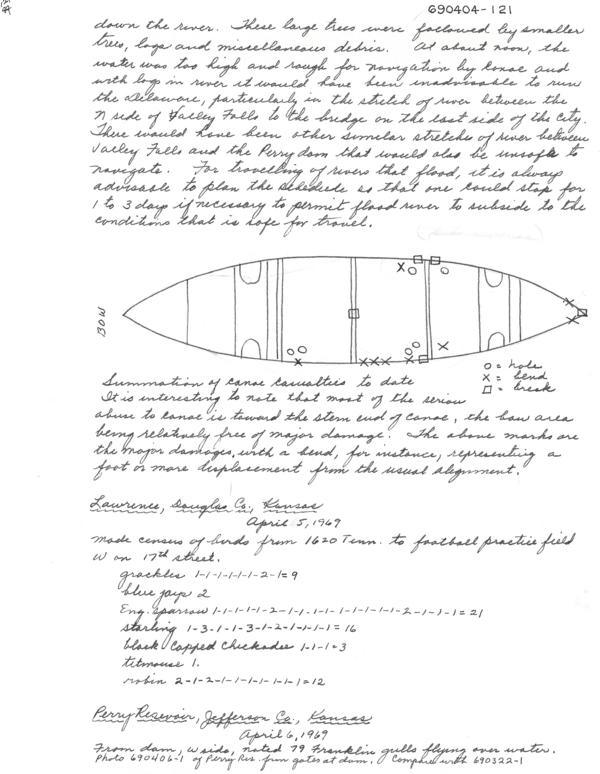 690404-121
down the river. These large trees were followed by smaller
trees, logs and miscellaneous debris. At about noon, the
water was too high and rough for navigation by kanoe and
with logs in river it would have been inadvisable to run
the Delaware, particularly in the stretch of river between the
N side of Valley Falls to the bridge on the east side of the city.
There would have been other similar stretches of river between
Valley Falls and the Perry dam that would also be unsafe to
navigate. For travelling of rivers that flood, it is always
advisable to plan the schedule so that one could stop for
1 to 3 days if necessary to permit flood river to subside to the
conditions that is safe for travel.
BOW
o = hole
x = bend
□ = break
Summation of canoe casualties to date
It is interesting to note that most of the serious
abuse to canoe is toward the stern end of canoe, the bow area
being relatively free of major damage. The above marks are
the major damages, with a bend, for instance, representing a
foot or more displacement from the usual alignment.
Lawrence, Douglas Co., Kansas
April 5, 1969
Made census of birds from 1620 Tenn. to football practice field
W on 17th street.
grackles 1-1-1-1-1-1-2-1=9
blue jays 2
Eng. sparrow 1-1-1-1-1-2-1-1-1-1-1-1-1-1-1-2-1-1-1=21
starling 1-3-1-1-3-1-2-1-1-1-1=16
black capped chickadee 1-1-1=3
titmouse 1.
robin 2-1-2-1-1-1-1-1-1-1=12
Perry Resevoir, Jefferson Co., Kansas
April 6, 1969
From dam, W side, noted 79 Franklin gulls flying over water.
Photo 690406-1 of Perry Res. from gates at dam. Compare with 690322-1